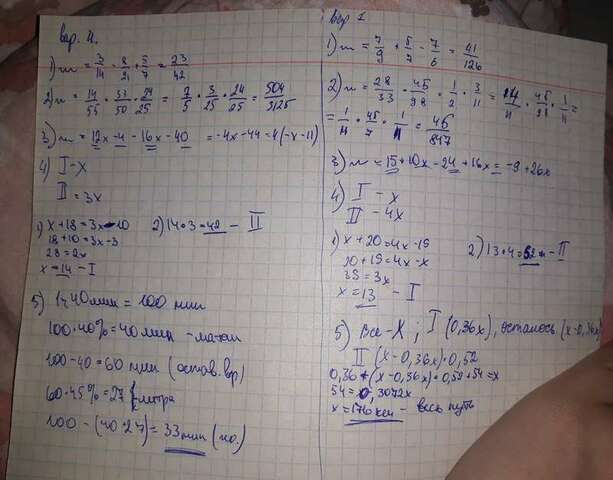 вар. 4.
1) m = 3/14 · 8/21 + 5/7 = 23/42
2) m = 14/55 · 33/50 · 24/25 = 2/5 · 3/25 · 24/25 = 504/3125
3) m = 12x - 4 - 16x - 40 = -4x - 44 = 4(-x-11)
4) I - x
II = 3x
1) x + 18 = 3x - 10
18 + 10 = 3x - 3
28 = 2x
x = 14 - I
2) 14 · 3 = 42 - II
5) 1ч 40 мин = 100 мин
100 · 40% = 40 мин - матем
100 - 40 = 60 мин (остав. вр)
60 · 45% = 27 литра
100 - (40 + 27) = 33 мин
вар 1
1) m = 7/9 + 5/7 - 7/6 = 41/126
2) m = 28/33 · 45/98 · 1/2 · 3/11 = 14/11 · 45/98 · 1/11 =
= 1/11 · 45/7 · 1/11 = 45/847
3) m = 15 + 10x - 24 + 16x = -9 + 26x
4) I - x
II - 4x
1) x + 20 = 4x - 19
20 + 19 = 4x - x
39 = 3x
x = 13 - I
2) 13 · 4 = 52 - II
5) Все - X ; I (0,36x), осталось (x - 0,36x)
II (x - 0,36x) · 0,52
0,36 + (x - 0,36x) · 0,52 + 54 = x
54 = 0,3072x
x = 176 км - весь путь